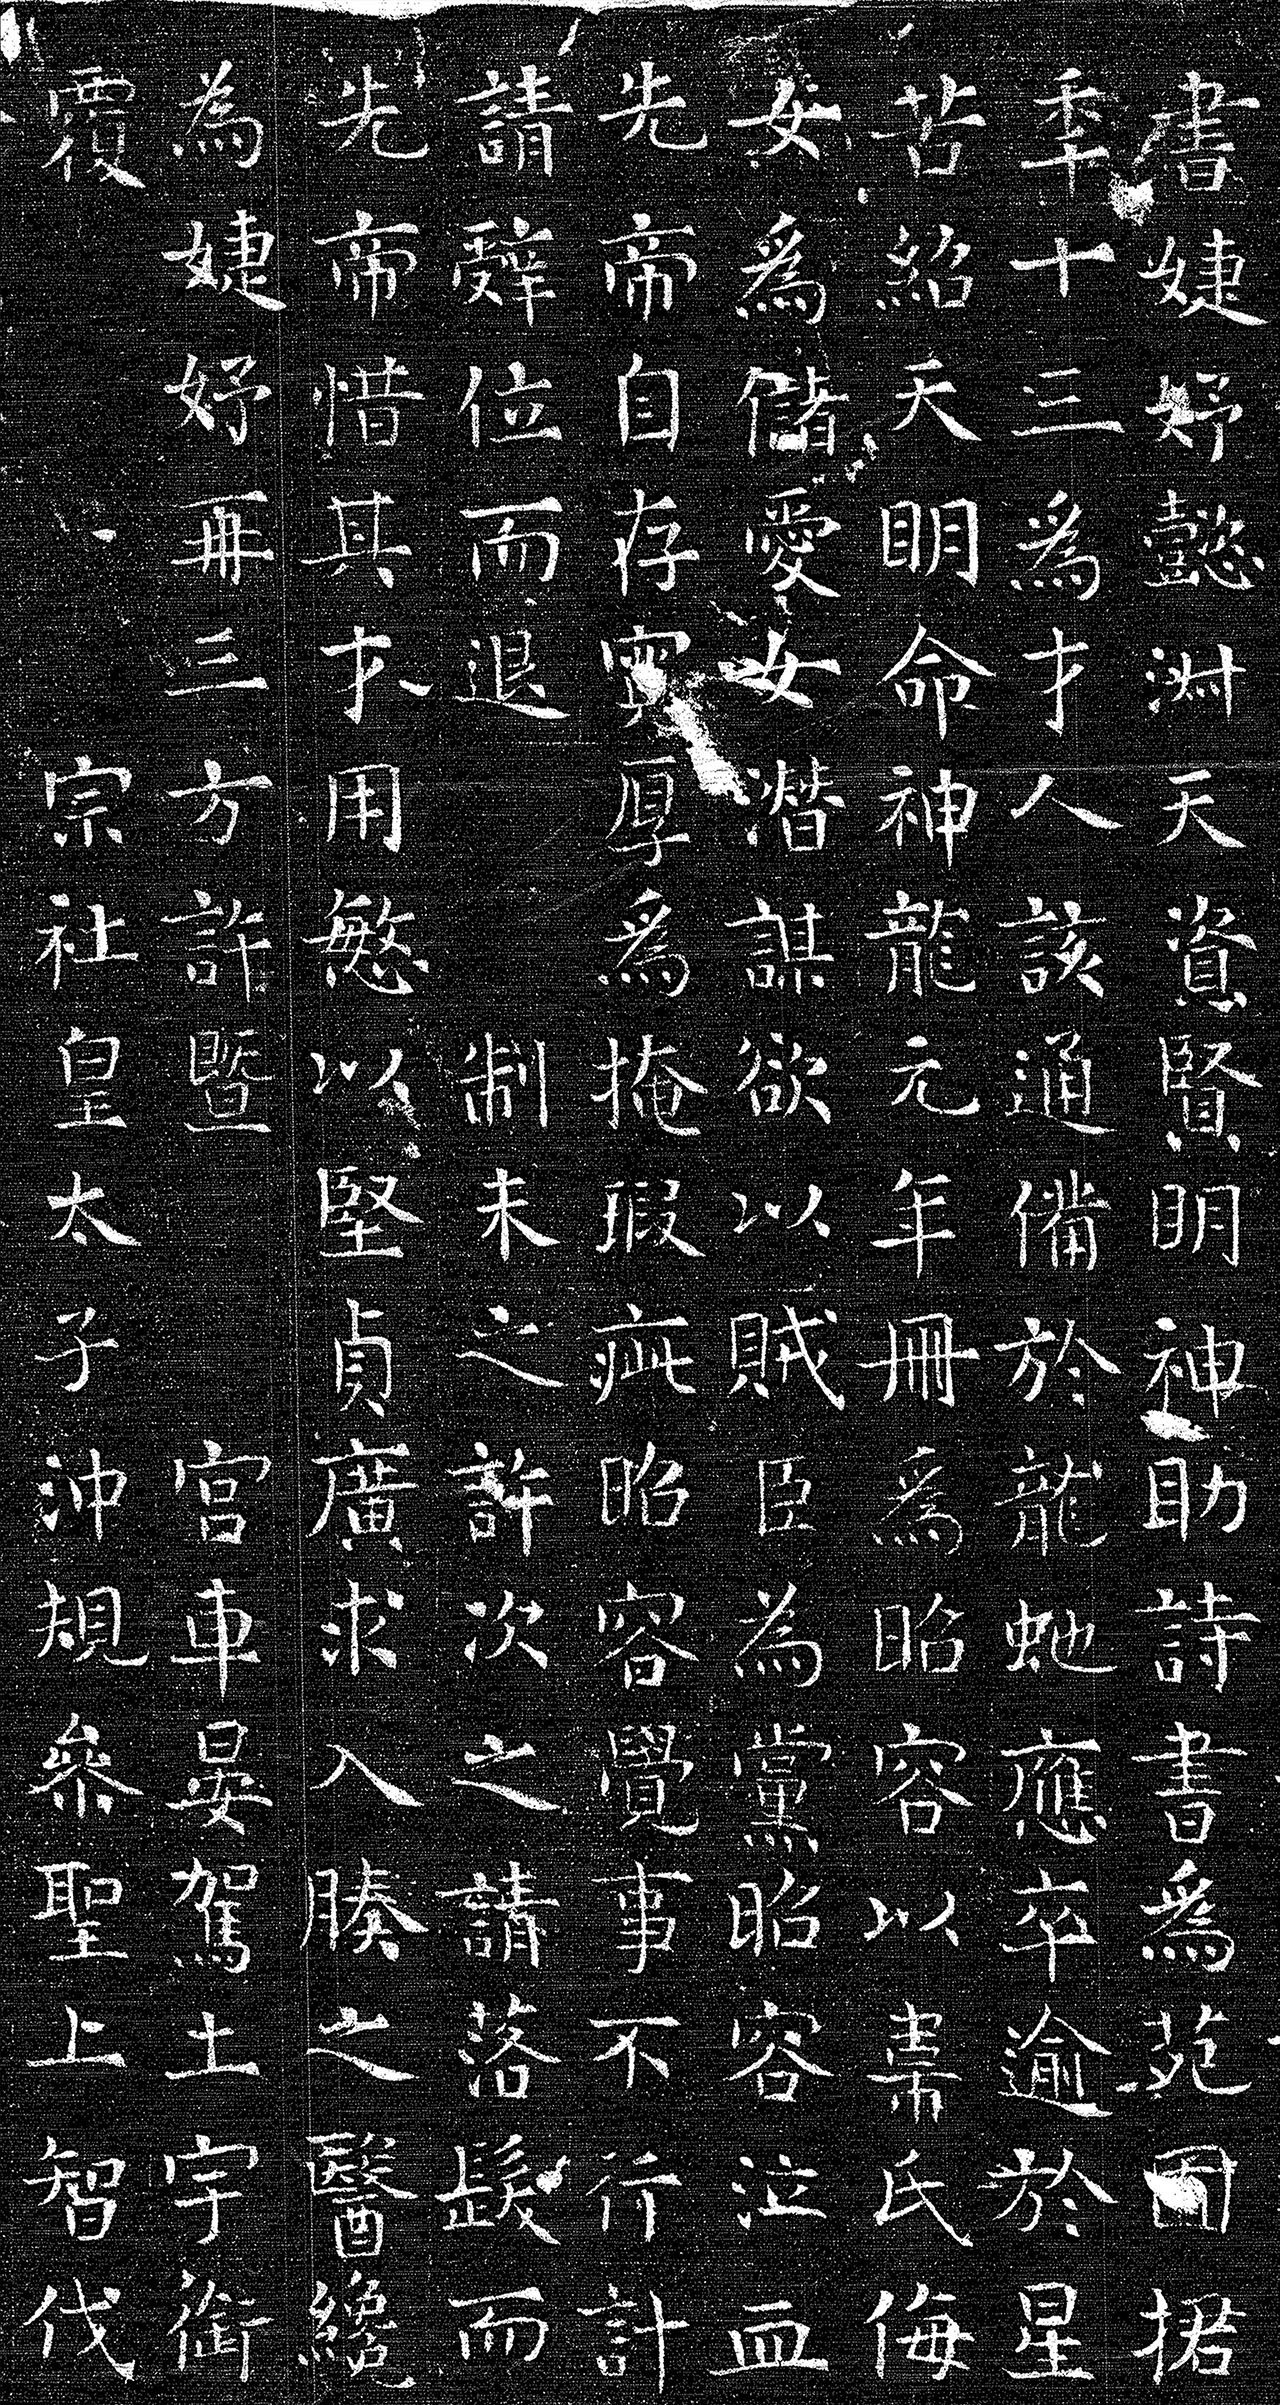 書婕妤懿淑天資賢眀神助詩書爲苑囿捃
秊十三爲才人該通備於龍虵應卒逾於星
苦紹天眀命神龍元年冊爲昭容以韋氏侮
女爲儲愛女潛謀欲以賊臣為黨昭容泣血
先帝自存寬厚爲掩瑕疵昭容覺事不行計
請辤位而退制未之許次之請落髮而
先帝惜其才用慜以堅貞廣求入腠之醫纔
為婕妤再三方許暨宮車晏駕土宇銜
覆宗社皇太子沖規叅聖上智伐